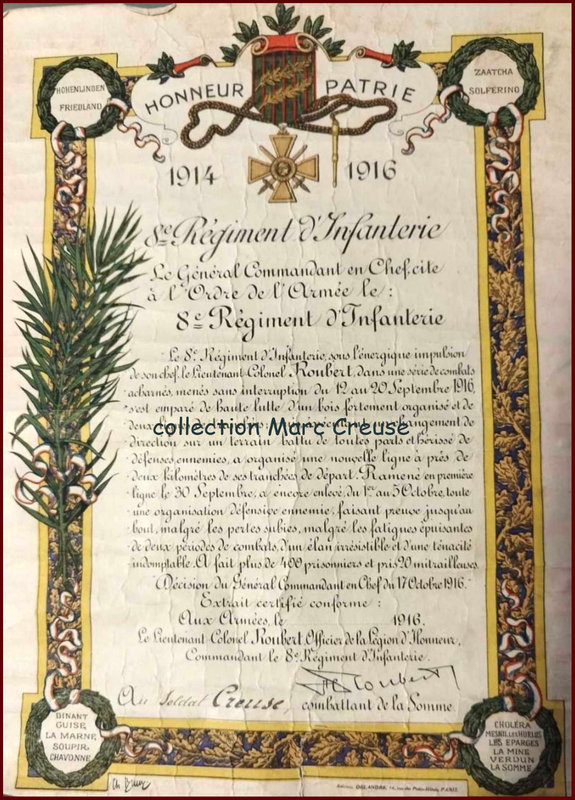 HONNEUR PATRIE
HOHENLINDEN
FRIEDLAND
ZAATCHA
SOLFÉRINO
1914 1916
8e Régiment d'Infanterie
Le Général Commandant en Chef, cite
à l'Ordre de l'Armée le :
8e Régiment d'Infanterie
Le 8e Régiment d'Infanterie, sous l'énergique impulsion
de son chef, le Lieutenant-Colonel Roubert, dans une série de combats
acharnés, menés sans interruption du 12 au 20 Septembre 1916,
s'est emparé de haute lutte d'un bois fortement organisé et de
deux changement de
collection Marc Creuse
direction sur un terrain battu de toutes parts et hérissé de
défenses ennemies, a organisé une nouvelle ligne à près de
deux kilomètres de ses tranchées de départ. Ramené en première
ligne le 30 Septembre, a encore enlevé, du 1er au 5 Octobre, toute
une organisation défensive ennemie, faisant preuve jusqu'au
bout, malgré les pertes subies, malgré les fatigues épuisantes
de deux périodes de combats, d'un élan irrésistible et d'une ténacité
indomptable. A fait plus de 400 prisonniers et pris 20 mitrailleuses.
Décision du Général Commandant en Chef du 17 Octobre 1916.
Extrait certifié conforme :
Aux Armées, le 1916.
Le Lieutenant-Colonel Roubert, Officier de la Légion d'Honneur,
Commandant le 8e Régiment d'Infanterie.
Roubert
Au soldat Creuse, combattant de la Somme
DINANT
GUISE,
LA MARNE,
SOUPIR,
CHAVONNE
CHOLÉRA
MESNIL LES HURLUS
LES EPARGES
LA MINE
VERDUN
LA SOMME
DELANDRE, PARIS.